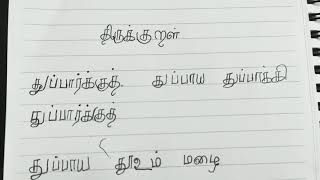 திருக்குறள்
துப்பார்க்குத். துப்பாய துப்பாக்கி
துப்பார்க்குத்
துப்பாய தூஉம் மழை